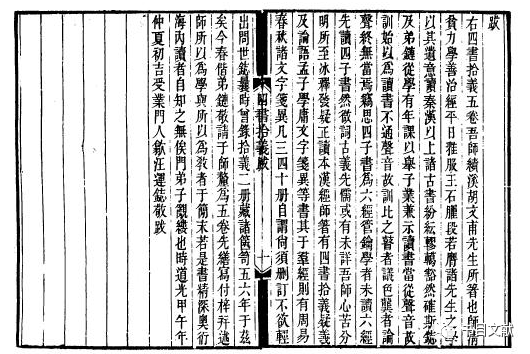 跋
右四書拾義五卷吾師績溪胡文甫先生所著也師清
貧力學善治經平日雅服王石臞段若膺諸先生之學
以其遺意讀秦漢以上諸古書紛紜轇轕豁然確斯鋕
及弟鏈從學有年課以舉子業兼示讀書當從聲音故
訓始以為讀書不通聲音故訓比之瞽者議色聾者論
聲終無當焉竊思四子書為六經管鑰學者未讀六經
先讀四子書然微詞古義先儒或有未詳吾師心苦分
明所至冰釋發疑正讀本漢經師著有四書拾義疑義
及論語孟子學庸文字箋異等書其于羣經則有周易
春秋諸文字箋異凡三四十册自謂尚須刪訂不欲輕
四書拾義跋
十
出問世鋕曩時曾錄拾義二册藏諸篋笥五六年于茲
矣今春偕弟鏈敬請于師釐為五卷先繕寫付梓幷述
師所以為學與所以為教者于簡末若是書精深奧衍
海內讀者自知之無俟門弟子覼縷也時道光甲午年
仲夏初吉受業門人歙汪運鋕敬跋
书目文献